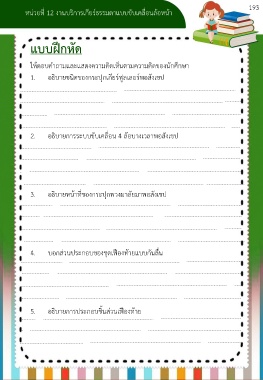 หน่วยที่ 12 งานบริการเกียร์ธรรมดาแบบขับเคลื่อนล้อหน้า
193
แบบฝึกหัด
ให้ตอบคำถามและแสดงความคิดเห็นตามความคิดของนักศึกษา
1. อธิบายชนิดของกระปุกเกียร์ทุกเกียร์พอสังเขป
2. อธิบายการระบบขับเคลื่อน 4 ล้อบางเวลาพอสังเขป
3. อธิบายหน้าที่ของกระปุกพวงมาลัยมาพอสังเขป
4. บอกส่วนประกอบของชุดเฟืองท้ายแบบกันลื่น
5. อธิบายการประกอบชิ้นส่วนเฟืองท้าย